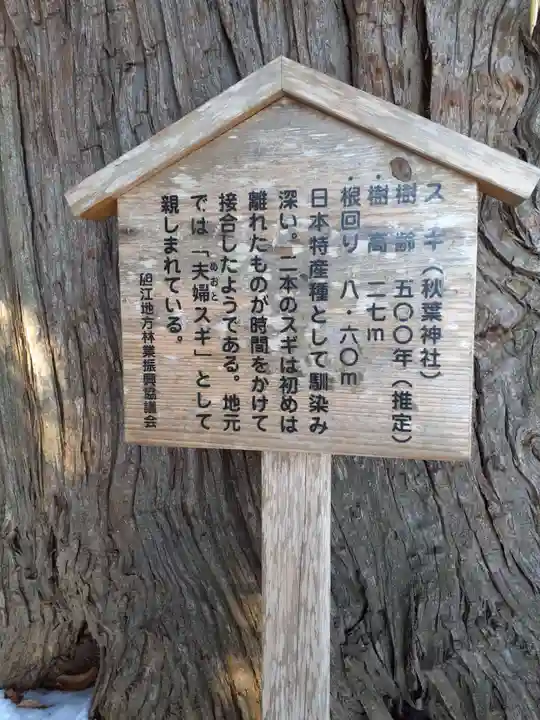 スギ(秋葉神社)
・樹齢 五〇〇年(推定)
・樹高 二七m
・根回り 八・六〇m
日本特産種として馴染み
深い。二本のスギは初めは
離れたものが時間をかけて
接合したようである。地元
では「夫婦スギ」として
めおと
親しまれている。
胆江地方林業振興協議会